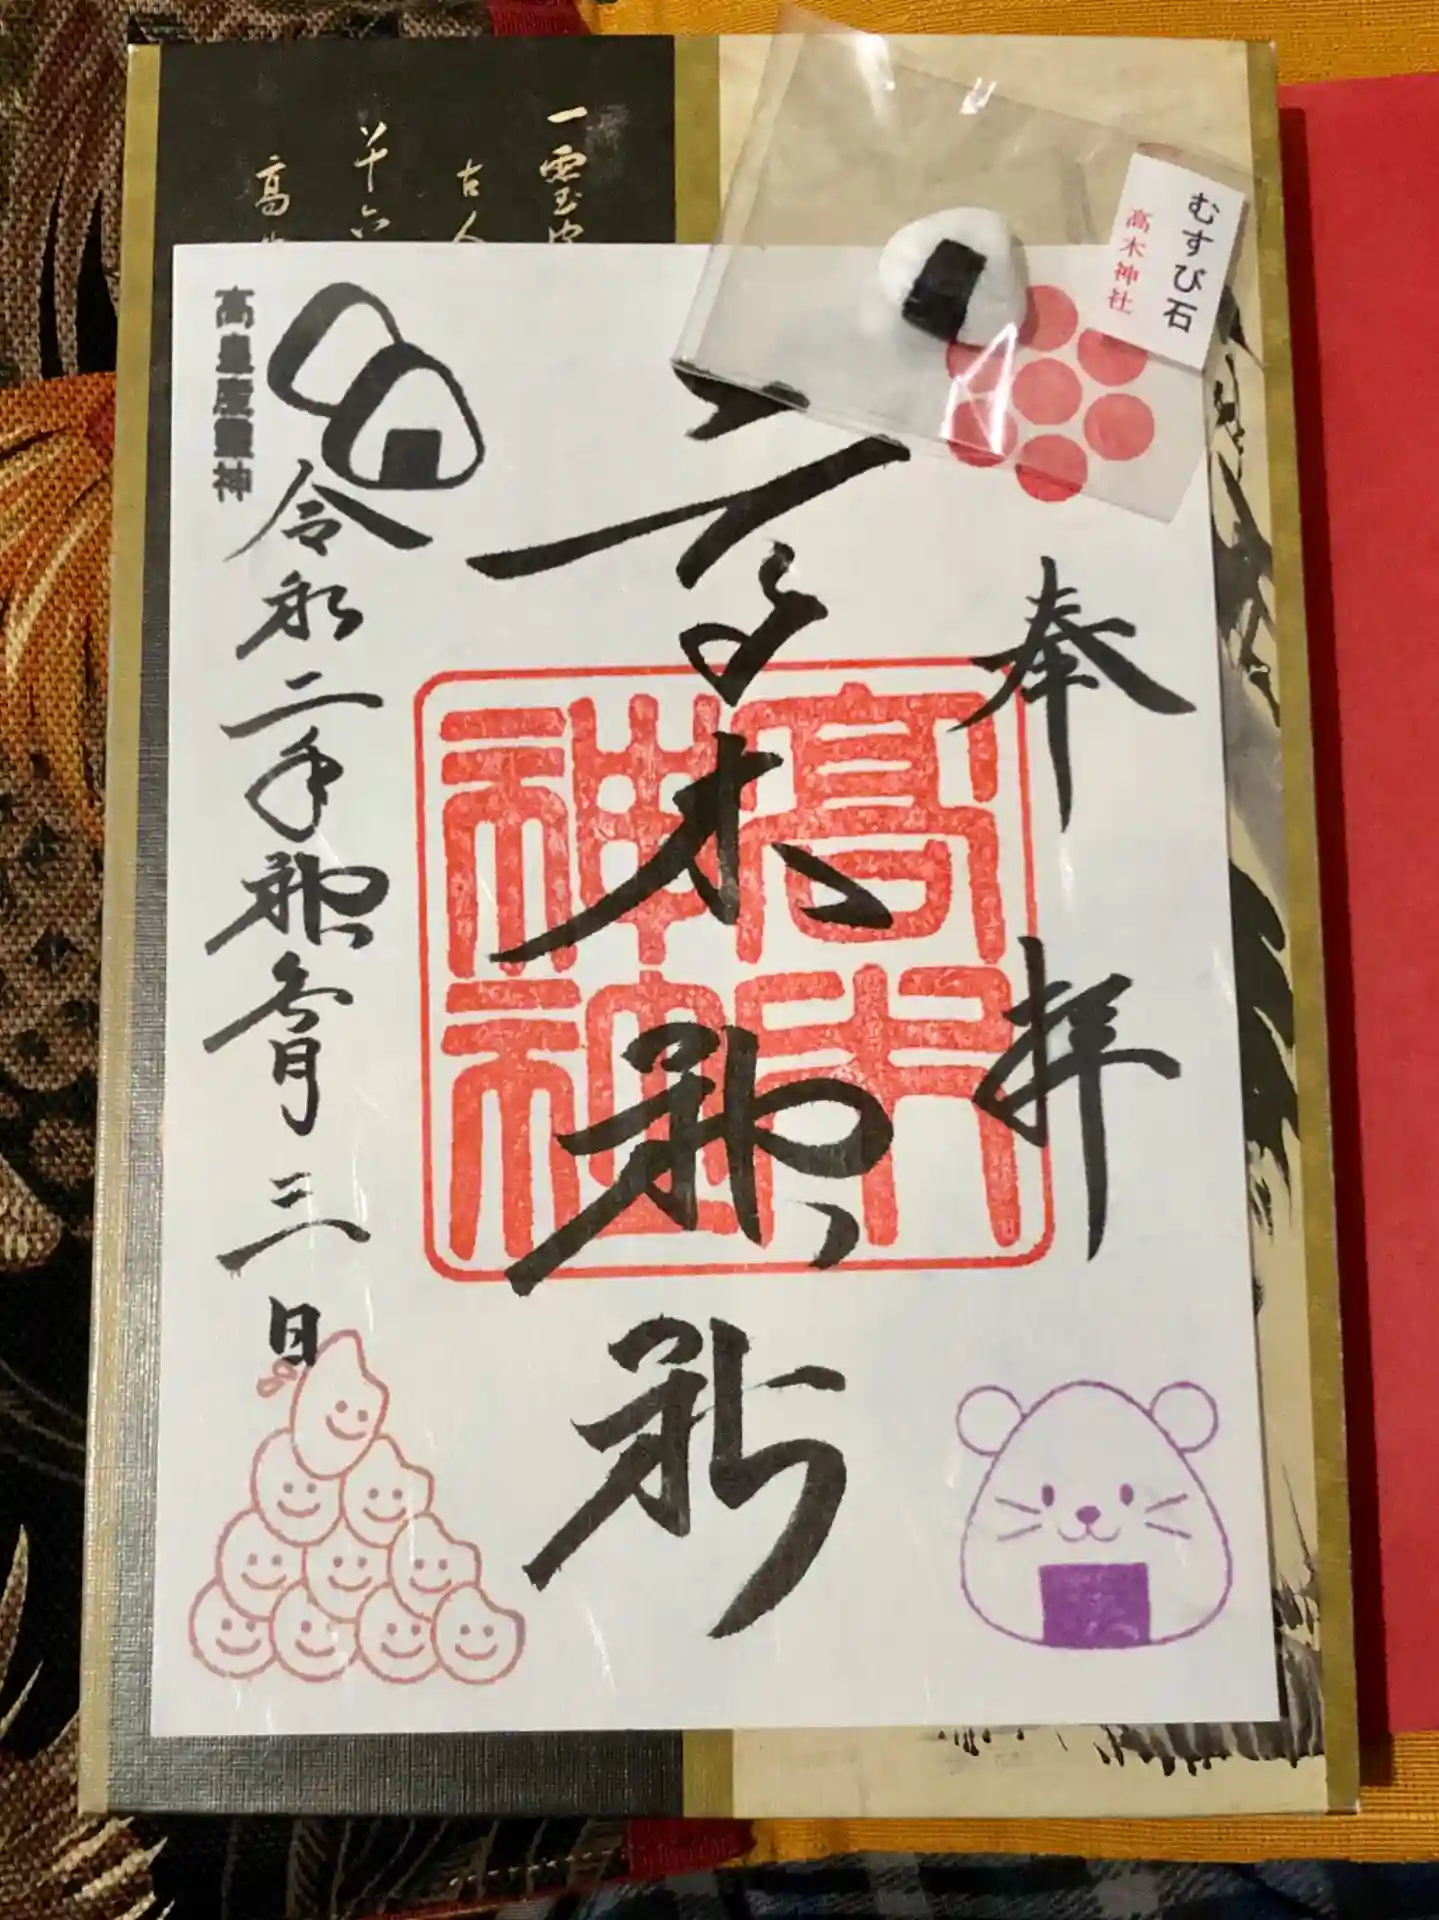 むすび石
高木神社
一霊
古人
高
奉拝
高木神社
高木
神社
高皇産霊神
令和二年神無月三日